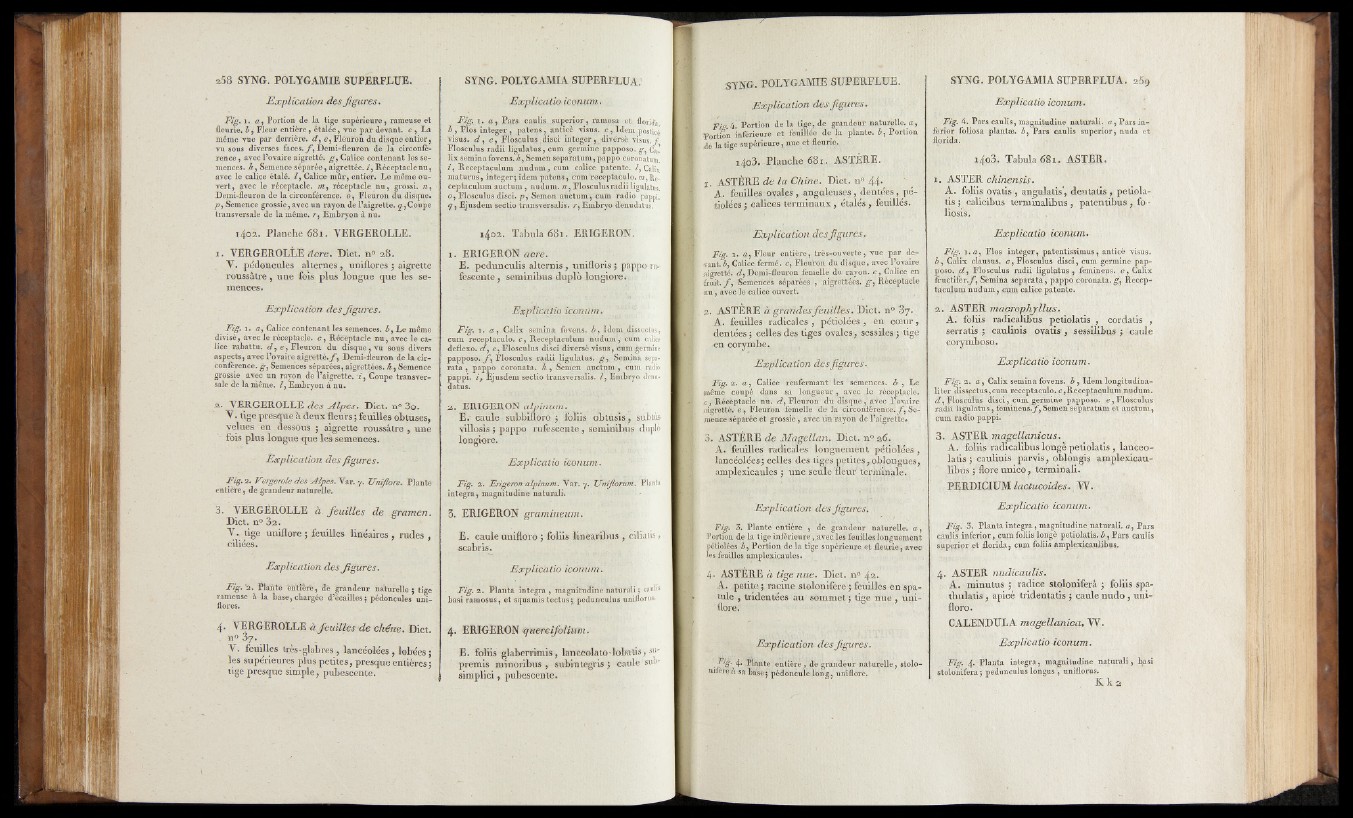 258 SYNG. POLYGAMIE SUPERFLUE.
Explication des figures.
Fig. 1. a, Portion de la tige supérieure, rameuse et
fleurie. b, Fleur entière, étalée, vue par devant. c, La
même vue par derrière. d, e, Fleuron du disque entier,
vu sous diverses faces. f, Demi-fleuron de la circonfé-
rence, avec l'ovaire aigretté. g, Calice contenant les se-
mences. h, Semence séparée, aigrettée. i, Réceptacle nu,
avec le calice étalé. l, Calice mûr, entier. Le même ou-
vert, avec le réceptacle. m, réceptacle nu, grossi. n,
Demi-fleuron de la circonférence. o, Fleuron du disque.
p, Semence grossie, avec un rayon de l'aigrette. q, Coupe
transversale de la même. r, Embryon à nu.
1402. Planche 681. VERGEROLLE.
1. VERGEROLLE âcre. Dict. n° 28.
V. pédoncules alternes, uniflores ; aigrette
roussâtre, une fois plus longue que les se-
mences.
Explication des figures.
Fig. 1. a, Calice contenant les semences. b, Le même
divisé, avec le réceptacle. c, Réceptacle nu, avec le ca-
lice rabattu. d, e, Fleuron du disque, vu sous divers
aspects, avec l'ovaire aigretté. f, Demi-fleuron de la cir-
conférence. g, Semences séparées, aigrettées. h, Semence
grossie avec un rayon de l'aigrette. i, Coupe transver-
sale de la même. l, Embryon à nu.
2. VERGEROLLE des Alpes. Dict. n° 30.
V. tige presque à deux fleurs ; feuilles obtuses,
velues en dessous ; aigrette roussâtre, une
fois plus longue que les semences.
Explication des figures.
Fig. 2. Vergerole des Alpes. Var. γ. Uniflore. Plante
entière, de grandeur naturelle.
3. VERGEROLLE à feuilles de gramen.
Dict. n° 32.
V. tige uniflore ; feuilles linéaires, rudes,
ciliées.
Explication des figures.
Fig. 2. Plante entière, de grandeur naturelle ; tige
rameuse à la base, chargée d'écailles ; pédoncules uni-
flores.
4. VERGEROLLE à feuilles de chêne. Dict.
n° 37.
V. feuilles très-glabres, lancéolées, lobées ;
les supérieures plus petites, presque entières ;
tige presque simple, pubescente.
SYNG. POLYGAMIA SUPERFLUA.
Explicatio iconum.
Fig. 1. a, Pars caulis superior, ramosa et florida.
b, Flos integer, patens, anticè visus. c, Idem posticè
visus. d, e, Flosculus disci integer, diversè visus. f,
Flosculus radii ligulatus, cum germine papposo. g, Ca-
lix semina fovens. h, Semen separatum, pappo coronatum.
i, Receptaculum nudum, cum calice patente. l, Calix
maturus, integer; idem patens, cum receptaculo. m, Re-
ceptaculum auctum, nudum. n, Flosculus radii ligulatus.
o, Flosculus disci. p, Semen auctum, cum radio pappi.
q, Ejusdem sectio transversalis. r, Embryo denudatus.
1402. Tabula 681. ERIGERON.
1. ERIGERON acre.
E. pedunculis alternis, unifloris ; pappo ru-
fescente, seminibus duplò longiore.
Explicatio iconum.
Fig. 1. a, Calix semina fovens. b, Idem dissectus,
cum receptaculo. c, Receptaculum nudum, cum calice
deflexo. d, e, Flosculus disci diversè visus, cum germine
papposo. f, Flosculus radii ligulatus. g, Semina sepa-
rata, pappo coronata. h, Semen auctum, cum radio
pappi. i, Ejusdem sectio transversalis. l, Embryo denu-
datus.
2. ERIGERON alpinum.
E. caule subbifloro ; foliis obtusis, subtùs
villosis ; pappo rufescente, seminibus duplò
longiore.
Explicatio iconum.
Fig. 2. Erigeron alpinum. Var. γ. Uniflorum. Planta
integra, magnitudine naturali.
3. ERIGERON gramineum.
E. caule unifloro ; foliis linearibus, ciliatis,
scabris.
Explicatio iconum.
Fig. 2. Planta integra, magnitudine naturali ; caulis
basi ramosus, et squamis tectus ; pedunculus uniflorus.
4. ERIGERON quercifolium.
E. foliis glaberrimis, lanceolato-lobatis, su-
premis minoribus, subintegris ; caule sub-
simplici, pubescente.
SYNG. POLYGAMIE SUPERFLUE.
Explication des figures.
Fig. 4. Portion de la tige, de grandeur naturelle. a,
Portion inférieure et feuillée de la plante. b, Portion
de la tige supérieure, nue et fleurie.
1403. Planche 681. ASTÈRE.
1. ASTÈRE de la Chine. Dict. n° 44.
A. feuilles ovales, anguleuses, dentées, pé-
tiolées ; calices terminaux, étalés, feuillés.
Explication des figures.
Fig. 1. a, Fleur entière, très-ouverte, vue par de-
vant. b, Calice fermé. c, Fleuron du disque, avec l'ovaire
aigretté. d, Demi-fleuron femelle du rayon. e, Calice en
fruit. f, Semences séparées, aigrettées. g, Réceptacle
nu, avec le calice ouvert.
2. ASTÈRE à grandes feuilles. Dict. n° 37.
A. feuilles radicales, pétiolées, en cœur,
dentées ; celles des tiges ovales, sessiles ; tige
en corymbe.
Explication des figures.
Fig. 2. a, Calice renfermant les semences. b, Le
même coupé dans sa longueur, avec le réceptacle.
c, Réceptacle nu. d, Fleuron du disque, avec l'ovaire
aigretté. e, Fleuron femelle de la circonférence. f, Se-
mence séparée et grossie, avec un rayon de l'aigrette.
3. ASTÈRE de Magellan. Dict. n° 26.
A. feuilles radicales longuement pétiolées,
lancéolées ; celles des tiges petites, oblongues,
amplexicaules ; une seule fleur terminale.
Explication des figures.
Fig. 3. Plante entière, de grandeur naturelle. a,
Portion de la tige inférieure, avec les feuilles longuement
pétiolées b, Portion de la tige supérieure et fleurie, avec
les feuilles amplexicaules.
4. ASTÈRE à tige nue. Dict. n° 42.
A. petite ; racine stolonifère ; feuilles en spa-
tule, tridentées au sommet ; tige nue, uni-
flore.
Explication des figures.
Fig. 4. Plante entière, de grandeur naturelle, stolo-
nifère à sa base ; pédoncule long, uniflore.
SYNG. POLYGAMIA SUPERFLUA. 259
Explicatio iconum.
Fig. 4. Pars caulis, magnitudine naturali. a, Pars in-
ferior foliosa plantæ. b, Pars caulis superior, nuda et
florida.
1403. Tabula 681. ASTER.
1. ASTER chinensis.
A. foliis ovatis, angulatis, dentatis, petiola-
tis ; calicibus terminalibus, patentibus, fo-
liosis.
Explicatio iconum.
Fig. 1. a, Flos integer, patentissimus, anticè visus.
b, Calix clausus. c, Flosculus disci, cum germine pap-
poso. d, Flosculus radii ligulatus, femineus. e, Calix
fructifer. f, Semina separata, pappo coronata. g, Recep-
taculum nudum, cum calice patente.
2. ASTER macrophyllus.
A. foliis radicalibus petiolatis, cordatis,
serratis ; caulinis ovatis, sessilibus ; caule
corymboso.
Explicatio iconum.
Fig. 2. a, Calix semina fovens. b, Idem longitudina-
liter dissectus, cum receptaculo. c, Receptaculum nudum.
d, Flosculus disci, cum germine papposo. e, Flosculus
radii ligulatus, femineus. f, Semen separatum et auctum,
cum radio pappi.
3. ASTER magellanicus.
A. foliis radicalibus longè petiolatis, lanceo-
latis ; caulinis parvis, oblongis amplexicau-
libus ; flore unico, terminali.
PERDICIUM lactucoides. W.
Explicatio iconum.
Fig. 3. Planta integra, magnitudine naturali. a, Pars
caulis inferior, cum foliis longè petiolatis. b, Pars caulis
superior et florida, cum foliis amplexicaulibus.
4. ASTER nudicaulis.
A. minutus ; radice stoloniferâ ; foliis spa-
thulatis, apice tridentatis ; caule nudo, uni-
floro.
CALENDULA magellanica, W.
Explicatio iconum.
Fig. 4. Planta integra, magnitudine naturali, basi
stolonifera ; pedunculus longus, uniflorus.
K k 2